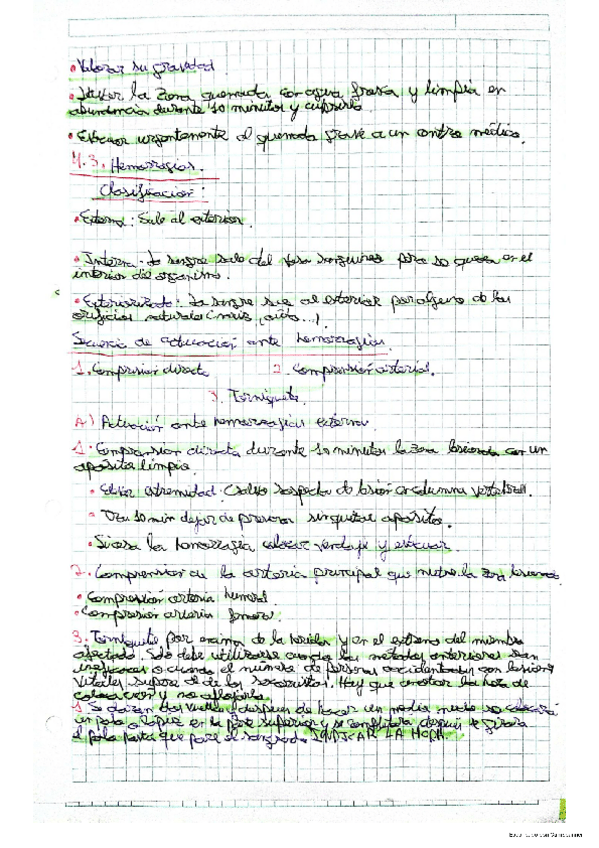 • Valorar su gravedad.
• Meter la zona quemada con agua fresca y limpia en
abundancia durante 10 minutos y cubrirla.
• Evacuar urgentemente al quemado grave a un centro médico.
4.3. Hemorragias.
Clasificación:
• Externa: Sale al exterior.
• Interna: La sangre sale del vaso sanguíneo pero se queda en el
interior del organismo.
• Exteriorizada: La sangre sale al exterior por alguno de los
orificios naturales (nariz, oído...).
Secuencia de actuación ante hemorragias.
1. Compresión directa 2. Compresión arterial.
3. Torniquete.
A) Actuación ante hemorragias externa.
1. Compresión directa durante 10 minutos la zona lesionada con un
apósito limpio.
• Elevar extremidad (salvo sospecha de lesión en columna vertebral).
• Tras 10 min dejar de presionar sin quitar apósito.
• Si cesa la hemorragia colocar vendaje y evacuar.
2. Compresión de la arteria principal que nutre la zona lesionada.
• Compresión arteria humeral
• Compresión arteria femoral
3. Torniquete por encima de la herida y en el extremo del miembro
afectado. Solo debe utilizarse cuando los métodos anteriores sean
ineficaces o cuando el número de personas accidentadas con lesiones
vitales supere al de los socorristas. Hay que anotar la hora de
colocación y no aflojarlo.
Se darán dos vueltas después de hacer un medio nudo se colocará
un palo o lápiz en la parte superior y se completará después se girará
el palo hasta que pare el sangrado. INDICAR LA HORA.